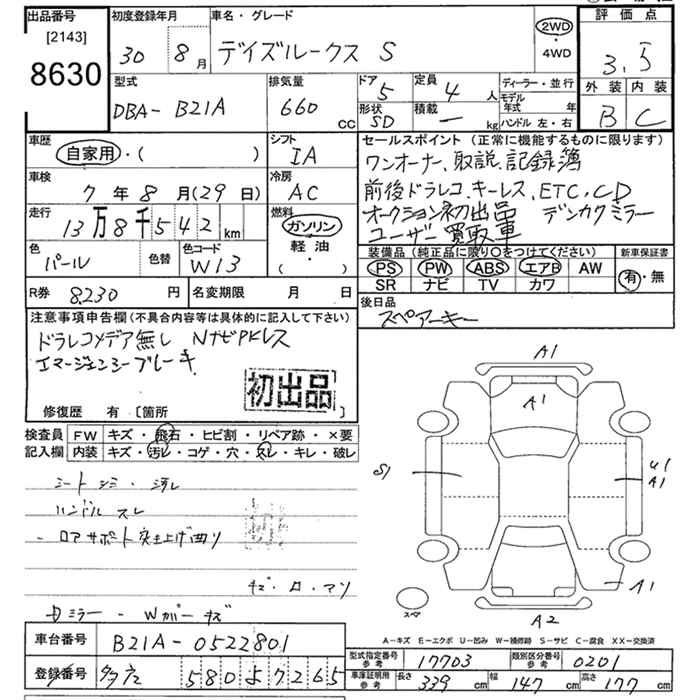 出品番号 初度登録年月 車名・グレード 評価点
[2143] 30 8月 デイズルークス S 2WD・4WD 3.5
8630 外装 内装
B C
型式 排気量 ドア 定員 ディーラー・並行
DBA-B21A 660cc 5 4人 モデル年式 年
形状 積載 ハンドル 左・右
SD ー kg
車歴 シフト セールスポイント (正常に機能するものに限ります)
自家用・( ) IA ワンオーナー、取説、記録簿
車検 冷房 前後ドラレコ、キーレス、ETC、CD
7年8月(29日) AC オークション初出品 デンカクミラー
走行 燃料 ユーザー買取車
13万8千542km ガソリン
軽油・( )
色 色替 色コード 装備品 (純正品に限り○をつけてください) 新車保証書
パール W13 PS PW ABS エアB AW 有・無
SR ナビ TV カワ
R券 8230円 名変期限 月 日 後日品
スペアーキー
注意事項申告欄(不具合内容等は具体的に記入して下さい)
ドラレコメデア無し NナビPKレス
エマージェンシーブレーキ
初出品
修復歴 有 〔箇所
検査員 FW キズ・飛石・ヒビ割・リペア跡・×要
記入欄 内装 キズ・汚レ・コゲ・穴・スレ・キレ・破レ
シートシミ・汚レ
ハンドルスレ
・ロアサポート突上げ曲り
A1
A1
S1
U1
A1
A1
A2
スペア
A-キズ E-エクボ U-凹み W-補修跡 S-サビ C-腐食 XX-交換済
車台番号 B21A-0522801
登録番号 580 7265
型式指定番号 参考 17703 類別区分番号 参考 0201
車庫証明用 参考 長さ 339cm 幅 147cm 高さ 177cm